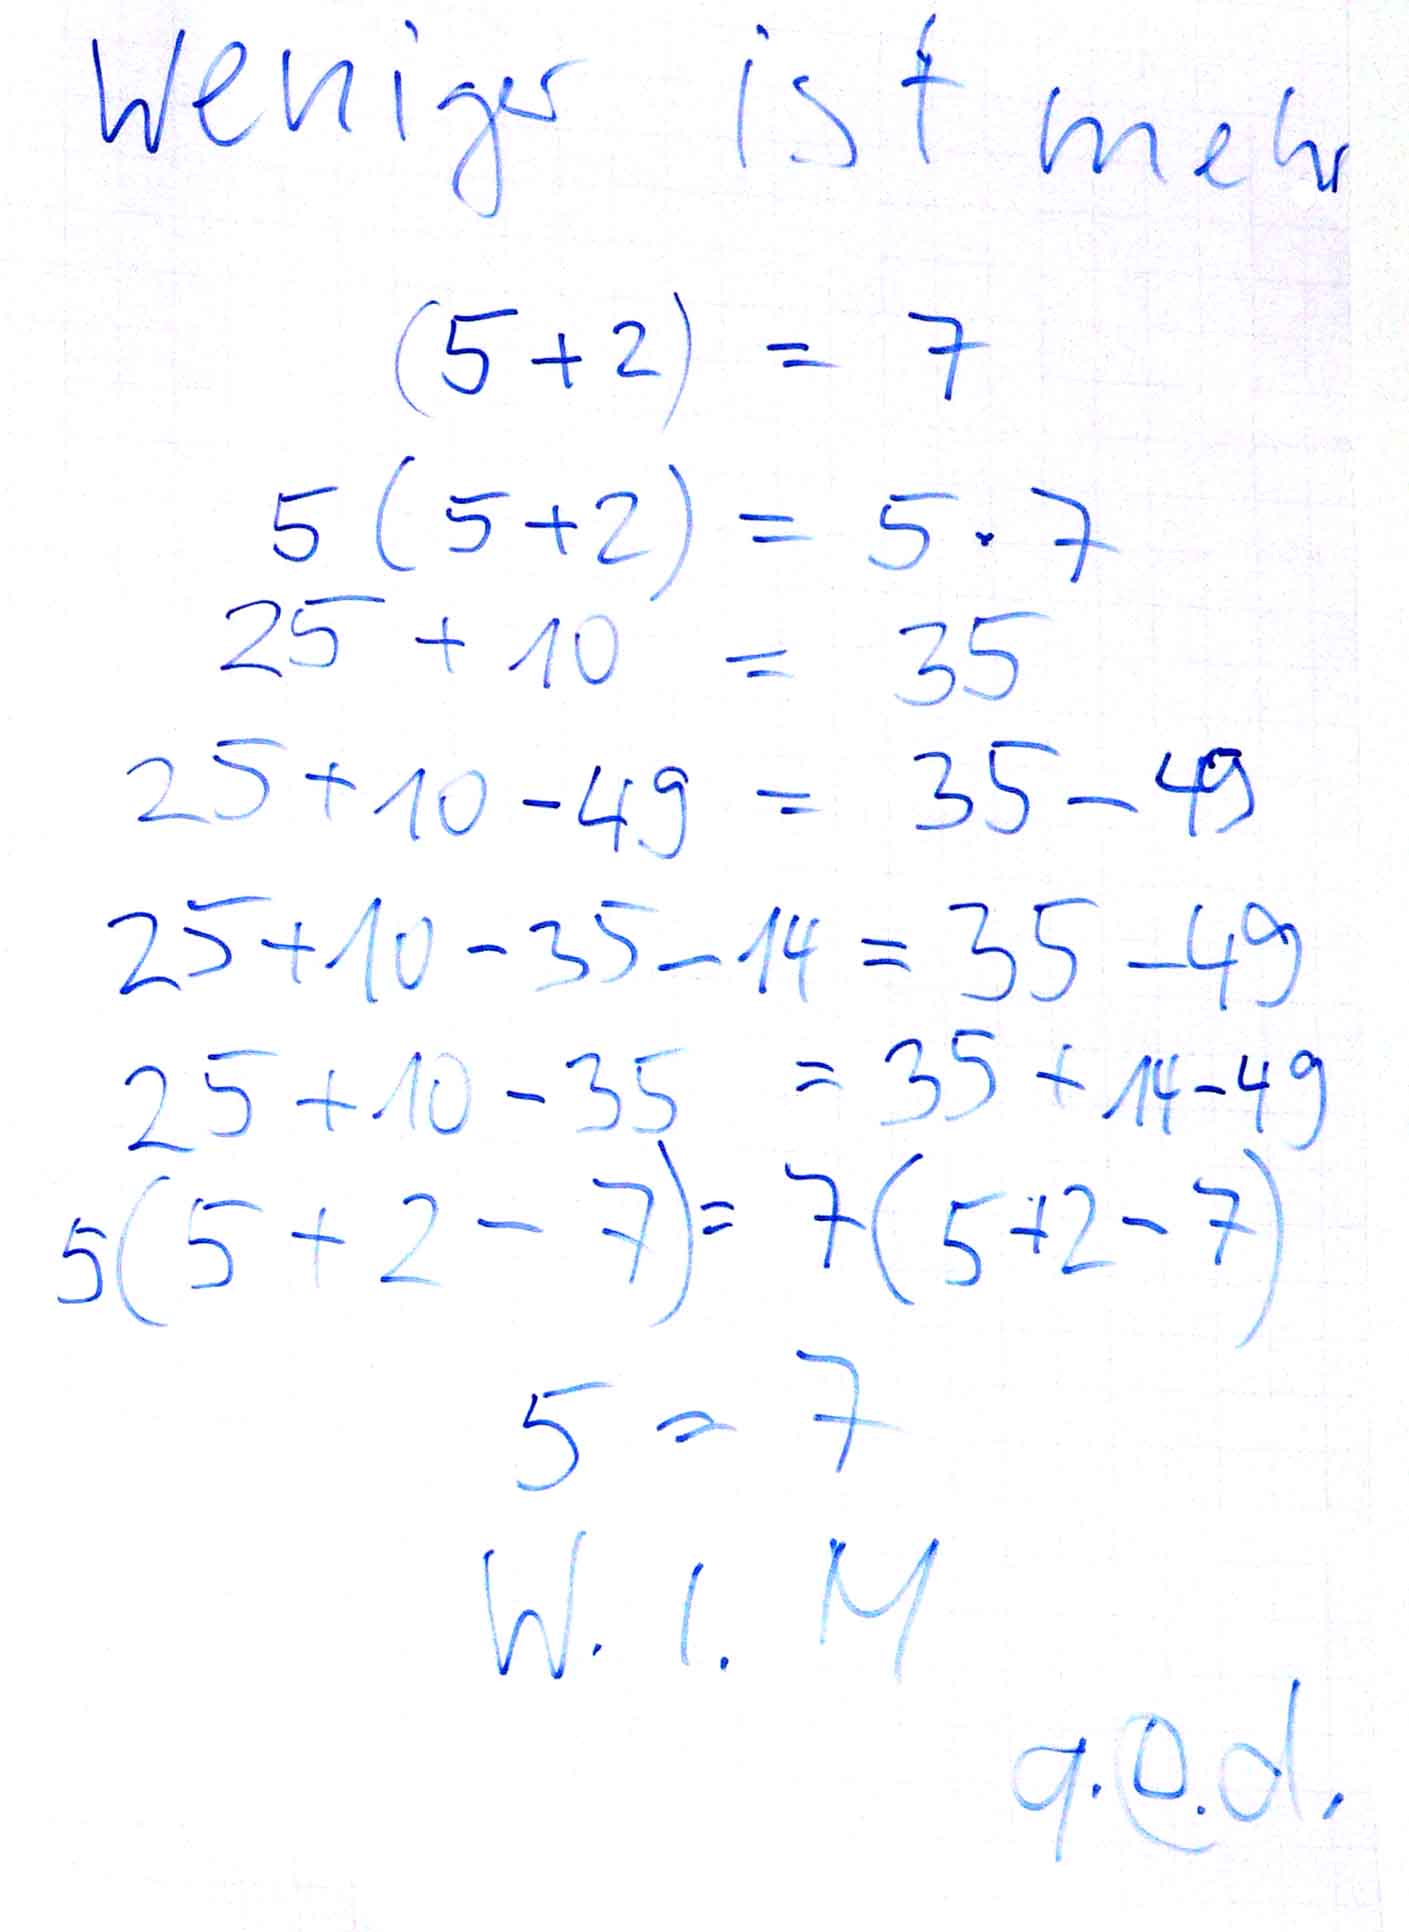 Weniger ist mehr
(5+2) = 7
5(5+2) = 5·7
25 + 10 = 35
25+10-49 = 35-49
25+10-35-14=35-49
25+10-35 = 35+14-49
5(5+2-7)=7(5+2-7)
5=7
W. I. M
q.e.d.